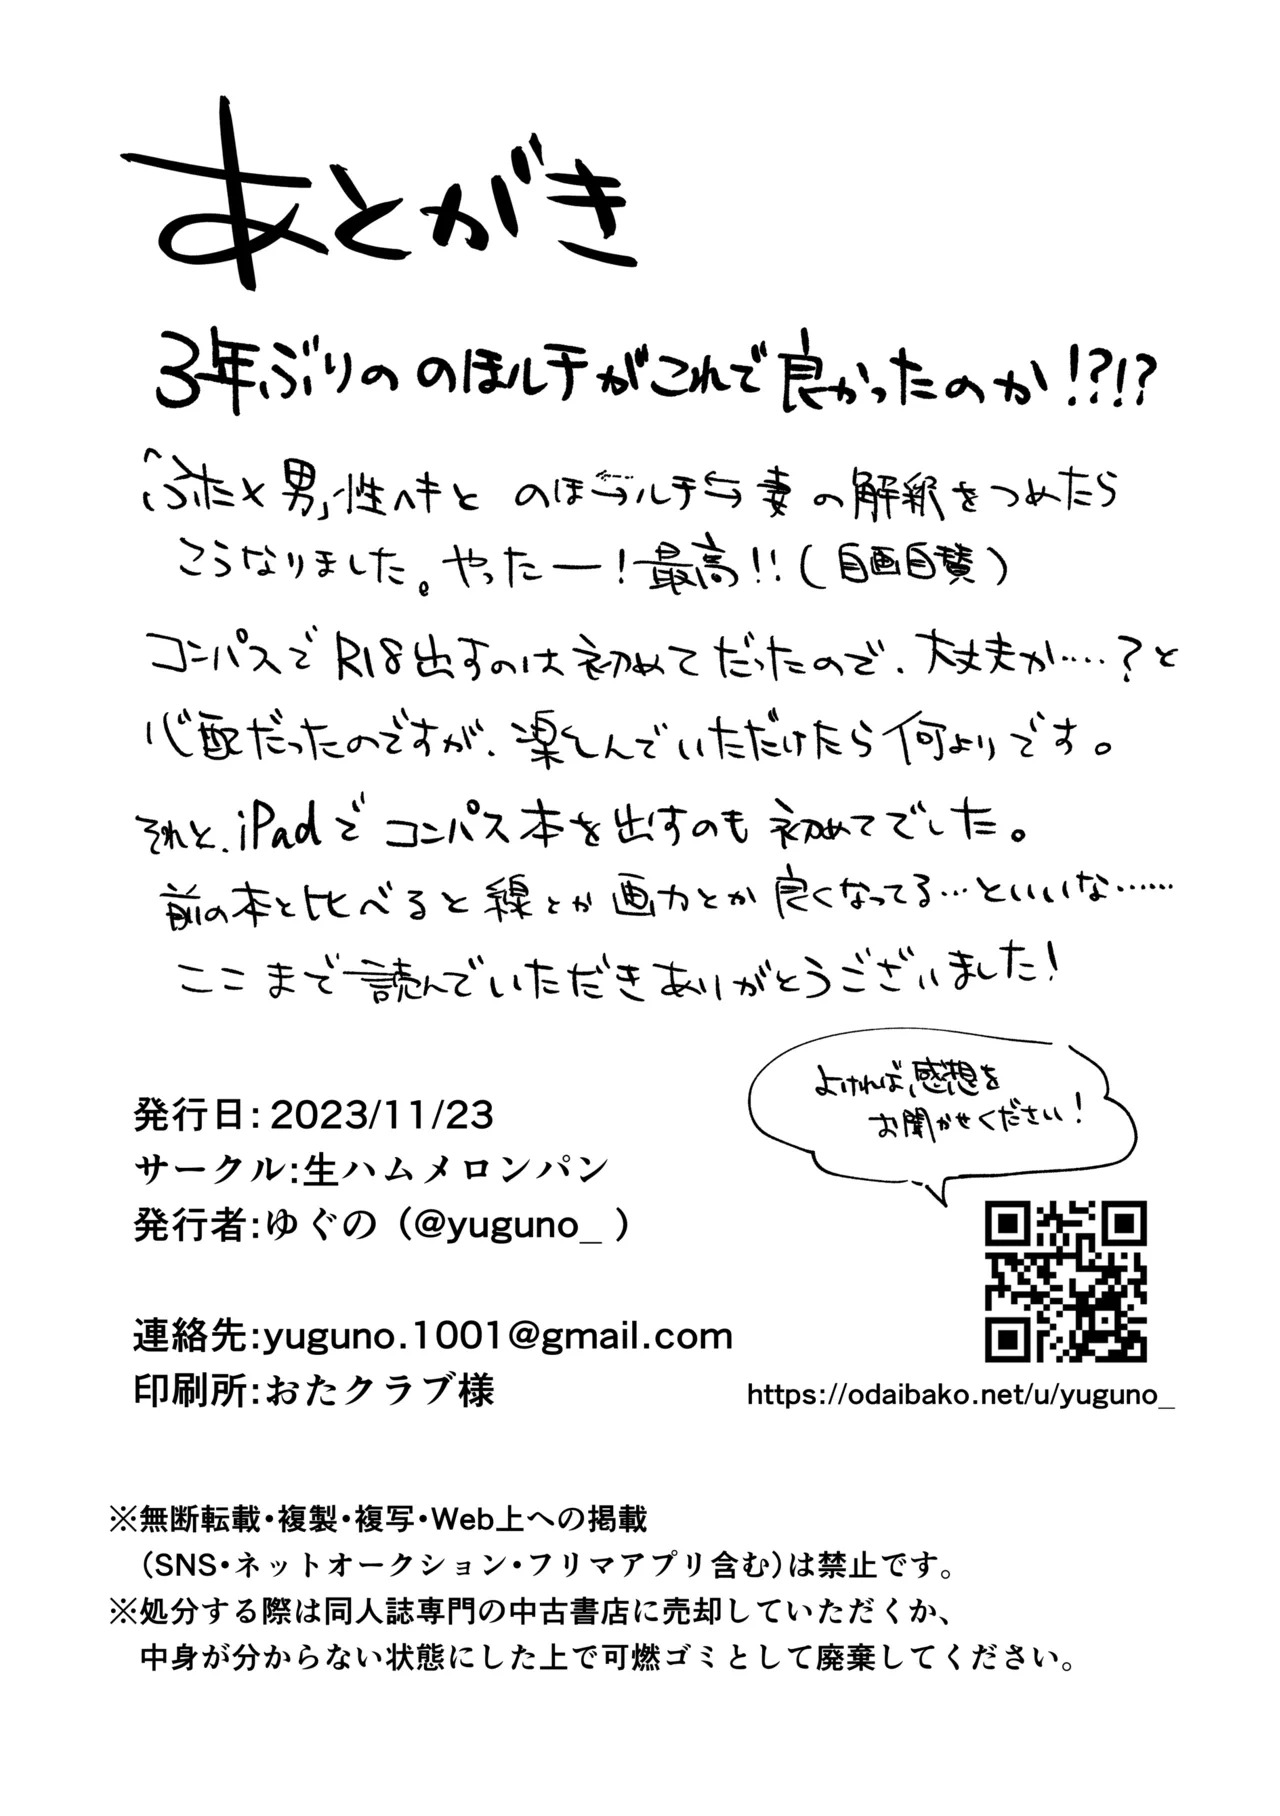 あとがき
3年ぶりの のほルチがこれで良かったのか!?!?
「ふた×男」性ヘキと のほ⇆ルチ⇆妻の解釈をつめたら
こうなりました。やったー!最高!!(自画自賛)
コンパスでR18出すのは初めてだったので、大丈夫か……?と
心配だったのですが、楽しんでいただけたら何よりです。
それと、iPadでコンパス本を出すのも初めてでした。
前の本と比べると線とか画力とか良くなってる…といいな……
ここまで読んでいただきありがとうございました!
よければ、感想を
お聞かせください!
発行日:2023/11/23
サークル:生ハムメロンパン
発行者:ゆぐの(@yuguno_ )
連絡先:yuguno.1001@gmail.com
印刷所:おたクラブ様
https://odaibako.net/u/yuguno_
※無断転載・複製・複写・Web上への掲載
(SNS・ネットオークション・フリマアプリ含む)は禁止です。
※処分する際は同人誌専門の中古書店に売却していただくか、
中身が分からない状態にした上で可燃ゴミとして廃棄してください。